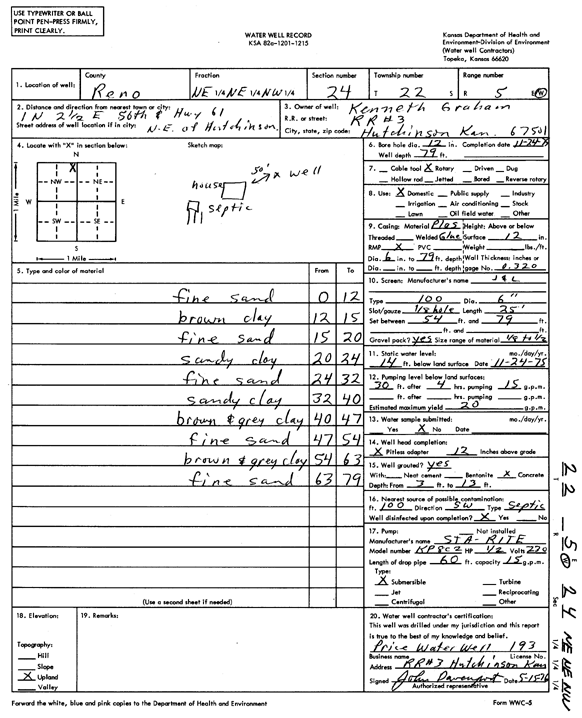 USE TYPEWRITER OR BALL
POINT PEN-PRESS FIRMLY,
PRINT CLEARLY.
WATER WELL RECORD
KSA 82a-1201-1215
Kansas Department of Health and
Environment-Division of Environment
(Water well Contractors)
Topeka, Kansas 66620
1. Location of well: County Reno Fraction NE 1/4 NE 1/4 NW 1/4 Section number 24 Township number T 22 S Range number R 5 E/W
2. Distance and direction from nearest town or city:
1 N 2 1/2 E 56th & Hwy 61
Street address of well location if in city: N.E. of Hutchinson
3. Owner of well: Kenneth Graham
R.R. or street: RR#3
City, state, zip code: Hutchinson Kan. 67501
4. Locate with "X" in section below:
Sketch map:
N
X
NW NE
W E
SW SE
S
1 Mile
1 Mile
50' x well
house
septic
6. Bore hole dia. 12 in. Completion date 11-24-75
Well depth 79 ft.
7. Cable tool X Rotary Driven Dug
Hollow rod Jetted Bored Reverse rotary
8. Use: X Domestic Public supply Industry
Irrigation Air conditioning Stock
Lawn Oil field water Other
9. Casing: Material Plas Height: Above or below
Threaded Welded Glue Surface 12 in.
RMP X PVC Weight lbs./ft.
Dia. 6 in. to 79 ft. depth Wall Thickness: inches or
Dia. in. to ft. depth gage No. 0.320
10. Screen: Manufacturer's name J & L
Type 100 Dia. 6"
Slot/gauze 1/8 hole Length 25'
Set between 54 ft. and 79 ft.
ft. and ft.
Gravel pack? yes Size range of material 1/8 to 1/2
11. Static water level: mo./day/yr.
14 ft. below land surface Date 11-24-75
12. Pumping level below land surfaces:
30 ft. after 4 hrs. pumping 15 g.p.m.
ft. after hrs. pumping g.p.m.
Estimated maximum yield 20 g.p.m.
13. Water sample submitted: mo./day/yr.
Yes X No Date
14. Well head completion:
X Pitless adapter 12 Inches above grade
15. Well grouted? yes
With: Neat cement Bentonite X Concrete
Depth: From 3 ft. to 13 ft.
16. Nearest source of possible contamination:
ft. 100 Direction SW Type Septic
Well disinfected upon completion? X Yes No
17. Pump: Not installed
Manufacturer's name STA-RITE
Model number KP8C2 HP 1/2 Volts 220
Length of drop pipe 60 ft. capacity 15 g.p.m.
Type:
X Submersible Turbine
Jet Reciprocating
Centrifugal Other
5. Type and color of material From To
fine sand 0 12
brown clay 12 15
fine sand 15 20
sandy clay 20 24
fine sand 24 32
sandy clay 32 40
brown & grey clay 40 47
fine sand 47 54
brown & grey clay 54 63
fine sand 63 79
(Use a second sheet if needed)
18. Elevation:
Topography:
Hill
Slope
X Upland
Valley
19. Remarks:
20. Water well contractor's certification:
This well was drilled under my jurisdiction and this report
is true to the best of my knowledge and belief.
Price Water Well 193
Business name License No.
Address RR#3 Hutchinson Kan
Signed John Davenport Date 5-15-76
Authorized representative
Forward the white, blue and pink copies to the Department of Health and Environment
Form WWC-5
T 22 R 5 E W Sec 24 1/4 1/4 1/4 NE NE NW